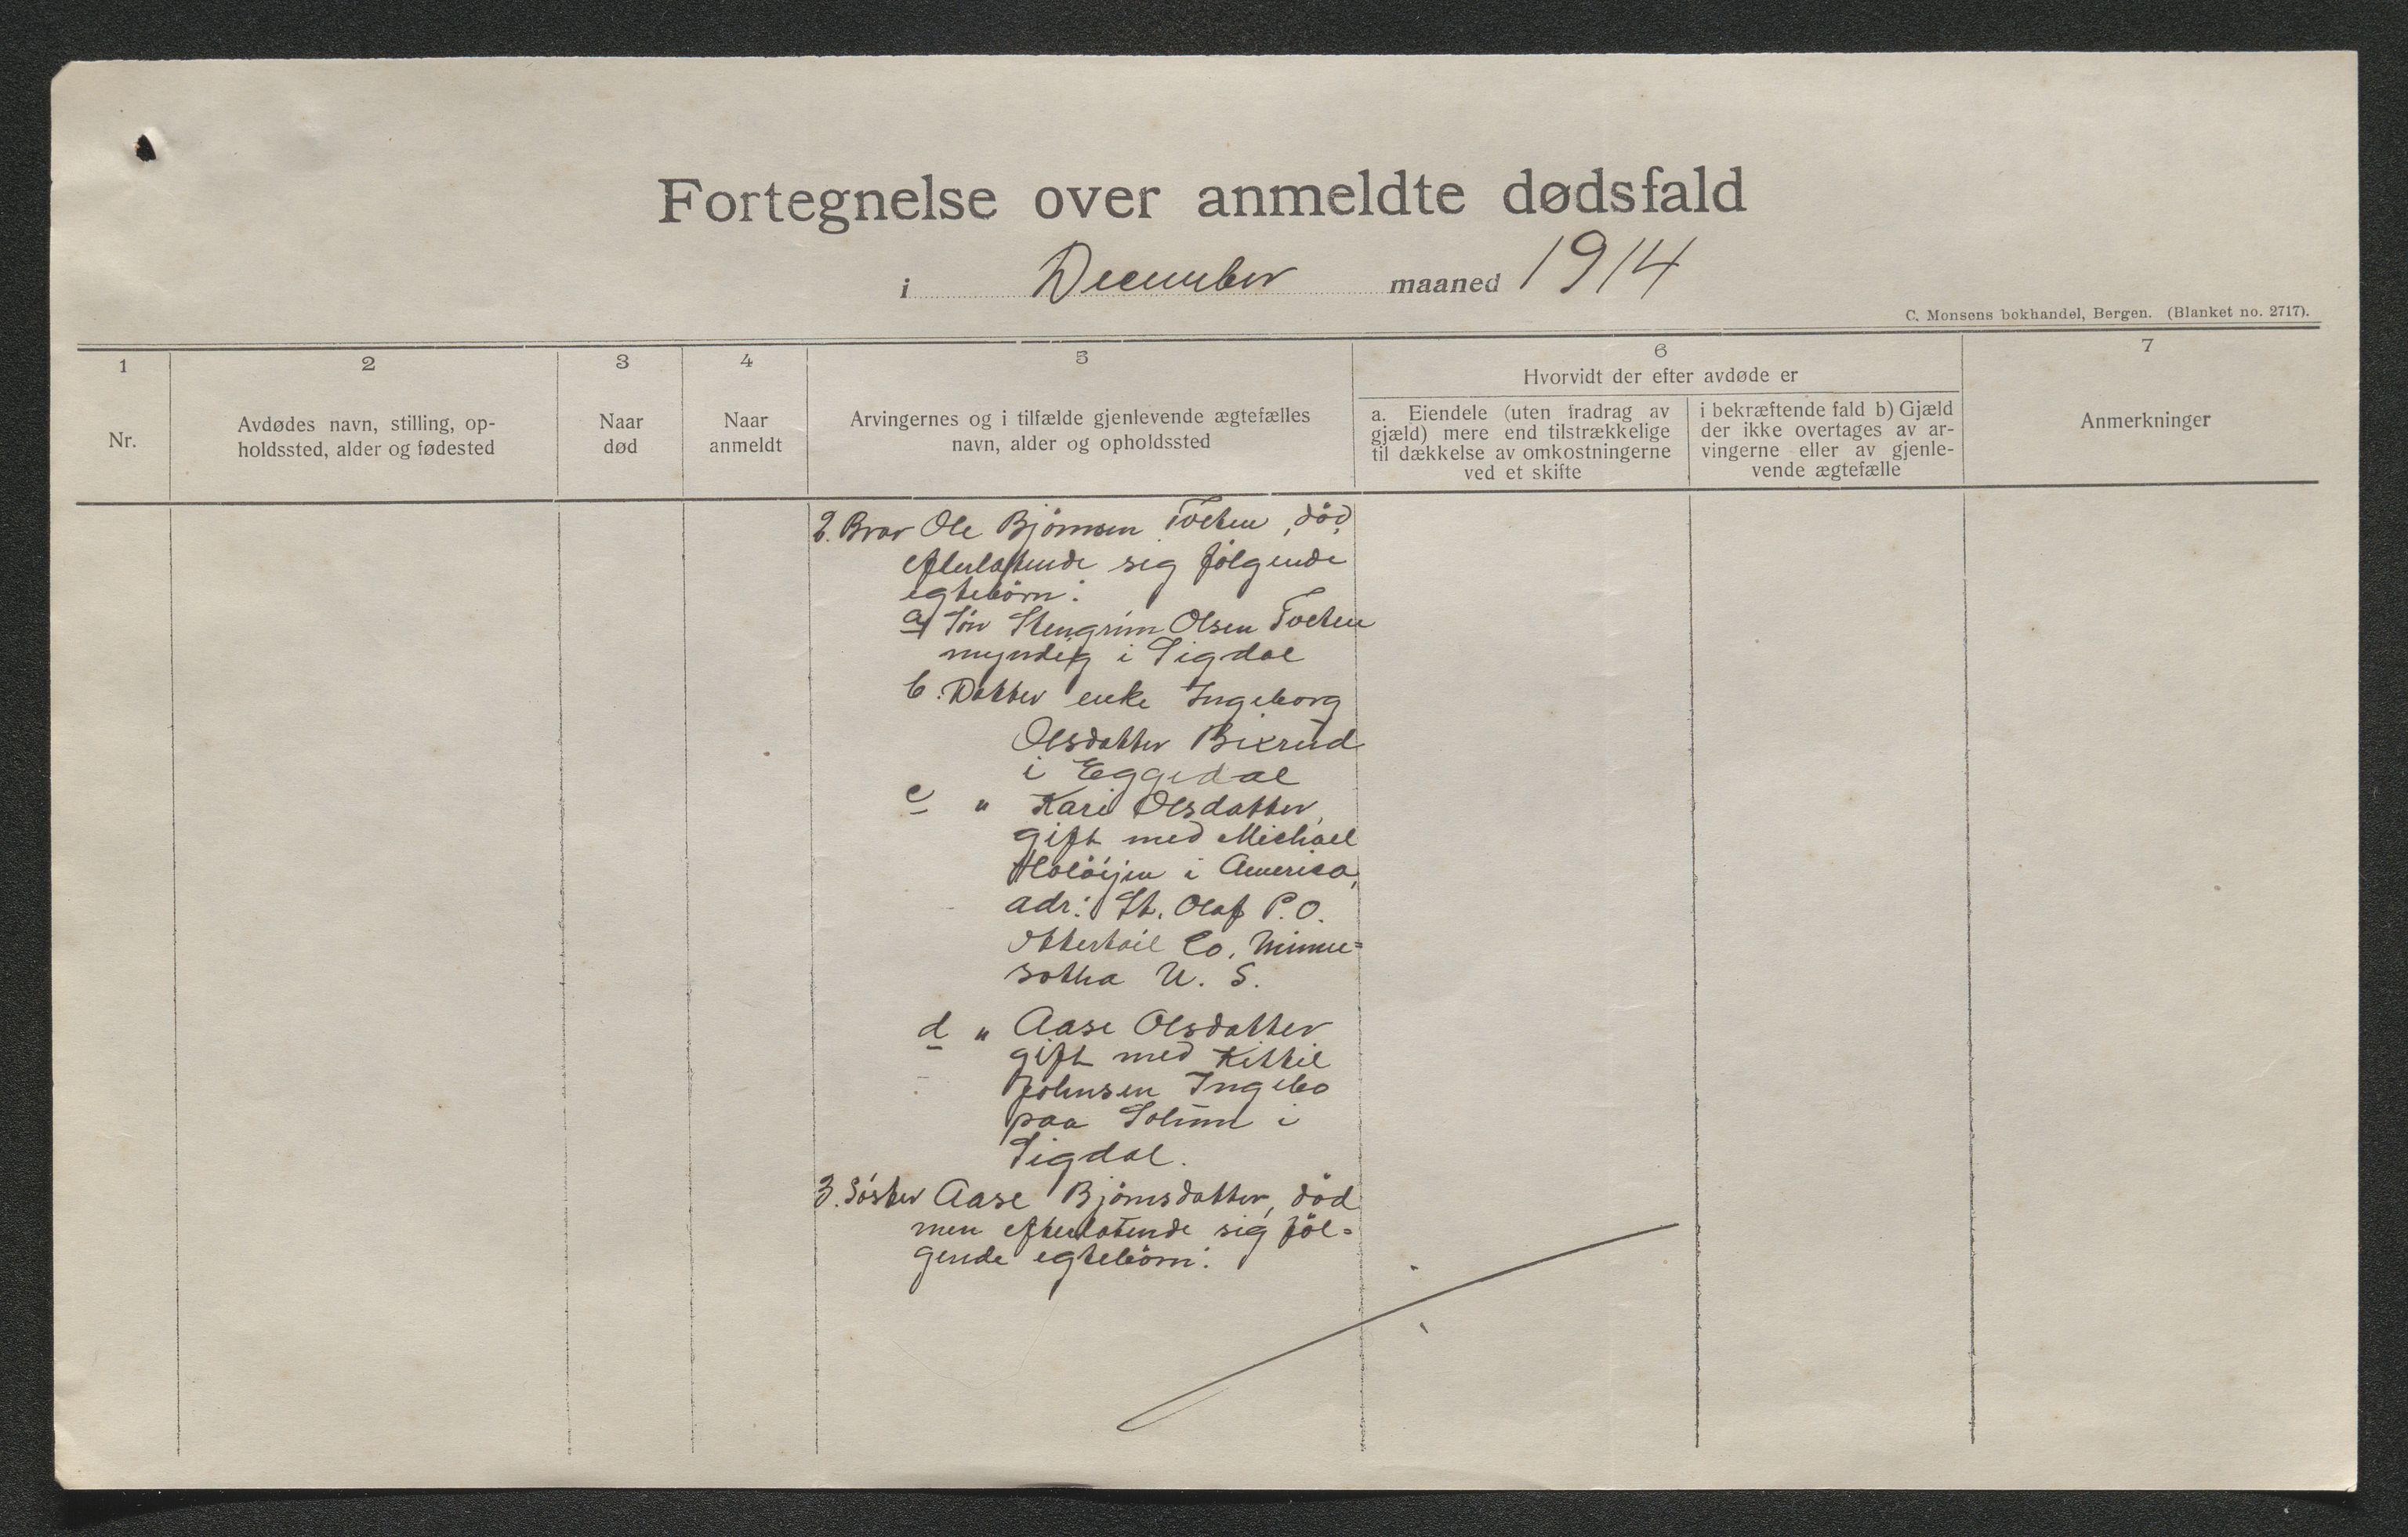 Fortegnelse over anmeldte dødsfald
i December maaned 1914
C. Monsens bokhandel, Bergen. (Blanket no. 2717).
1
Nr.
2
Avdødes navn, stilling, op-
holdssted, alder og fødested
3
Naar
død
4
Naar
anmeldt
5
Arvingernes og i tilfælde gjenlevende ægtefælles
navn, alder og opholdssted
6
Hvorvidt der efter avdøde er
a. Eiendele (uten fradrag av
gjæld) mere end tilstrækkelige
til dækkelse av omkostningerne
ved et skifte
i bekræftende fald b) Gjæld
der ikke overtages av ar-
vingerne eller av gjenle-
vende ægtefælle
7
Anmerkninger
2. Bror Ole Björnsen Tveten, död,
efterlatende sig følgende
egtebörn:
a) Sön Stengrim Olsen Tveten
myndig i Sigdal
b. Datter enke Ingeborg
Olsdatter Bixrud
i Eggedal
c " Kari Olsdatter,
gift med Michael
i America,
adr: St. Olaf P.O.
Ottertail Co, Minne=
sotha U. S.
d " Aase Olsdatter
gift med Kittil
Johnsen Ingebo
paa Solum i
Sigdal.
3. Söster Aase Björnsdatter, död
men efterlatende sig föl=
gende egtebörn: